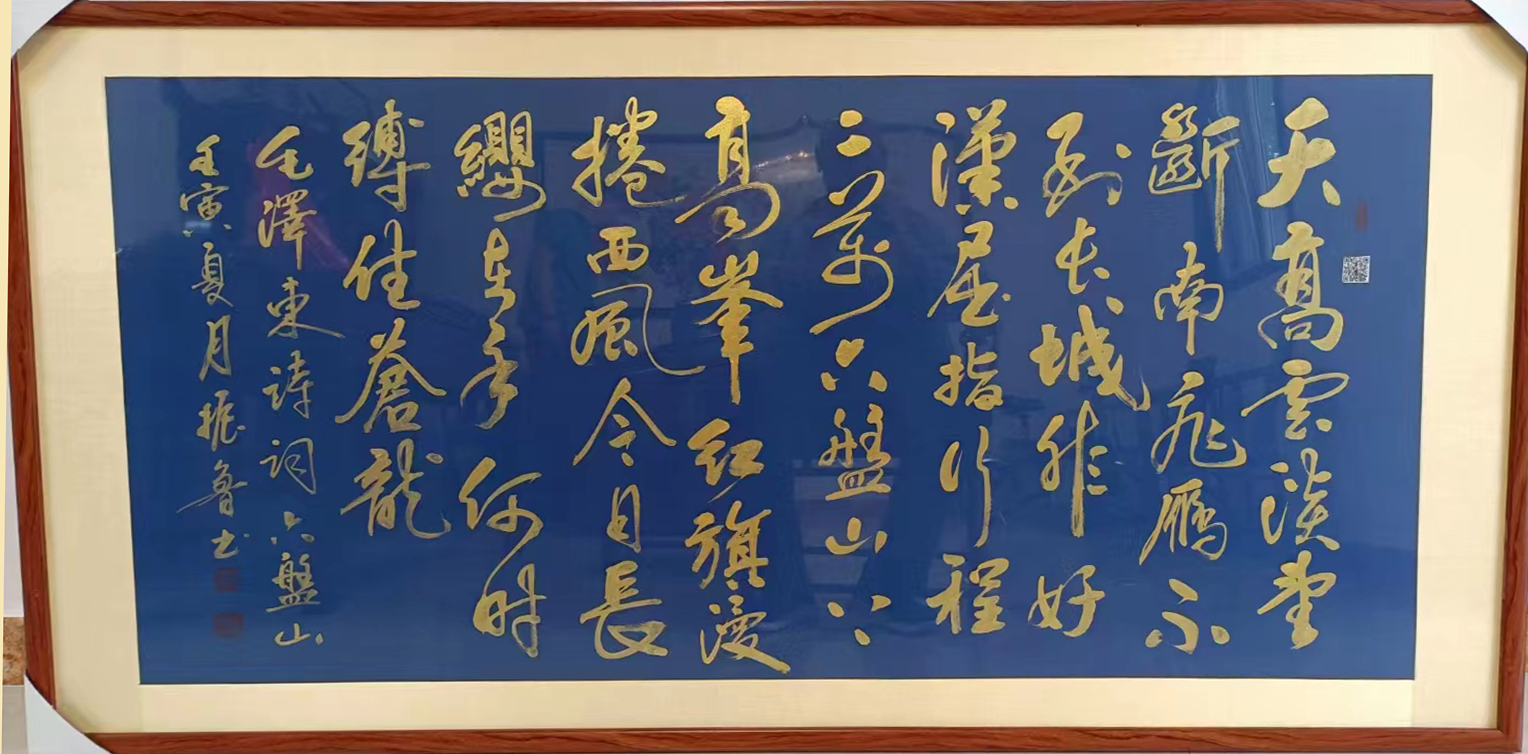 天高雲淡望
斷南飛雁不
到长城非好
漢屈指行程
二萬六盤山上
高峯红旗漫
捲西風今日長
纓在手何时
縛住蒼龍
毛澤東詩词六盤山
壬寅夏月振魯书